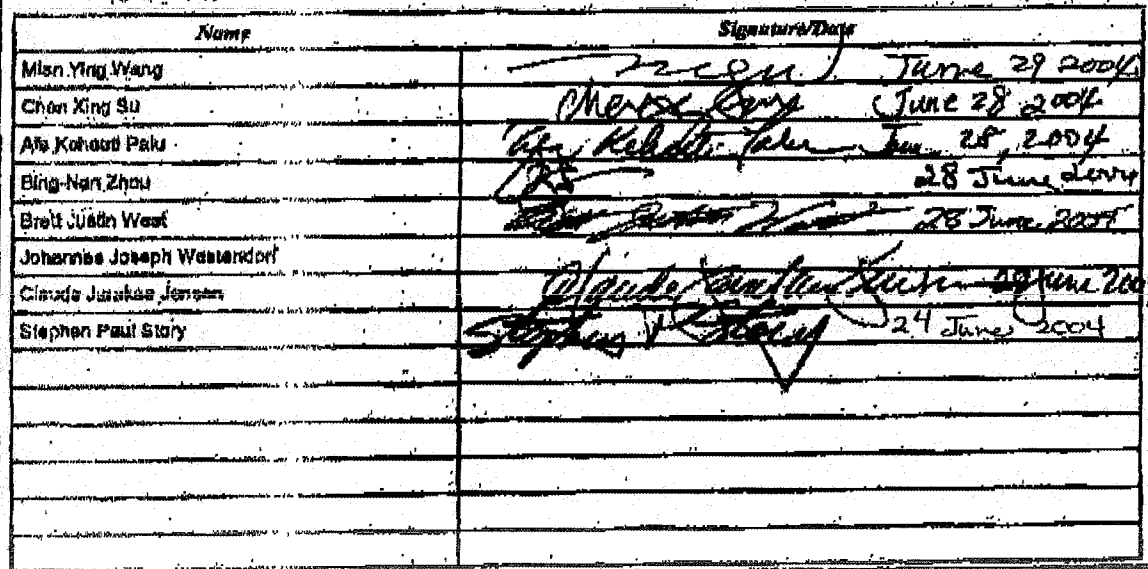 Name Signature/Date
Mian Ying Wang June 29 2004
Chen Xing Su June 28, 2004
Afa Kehaati Palu 28, 2004
Bing-Nan Zhou 28 June 2004
Brett Justin West 28 June 2004
Johannes Joseph Westendorf
Claude Jarakae Jensen Claude June 200
Stephen Paul Story Stephen P Story 24 June 2004